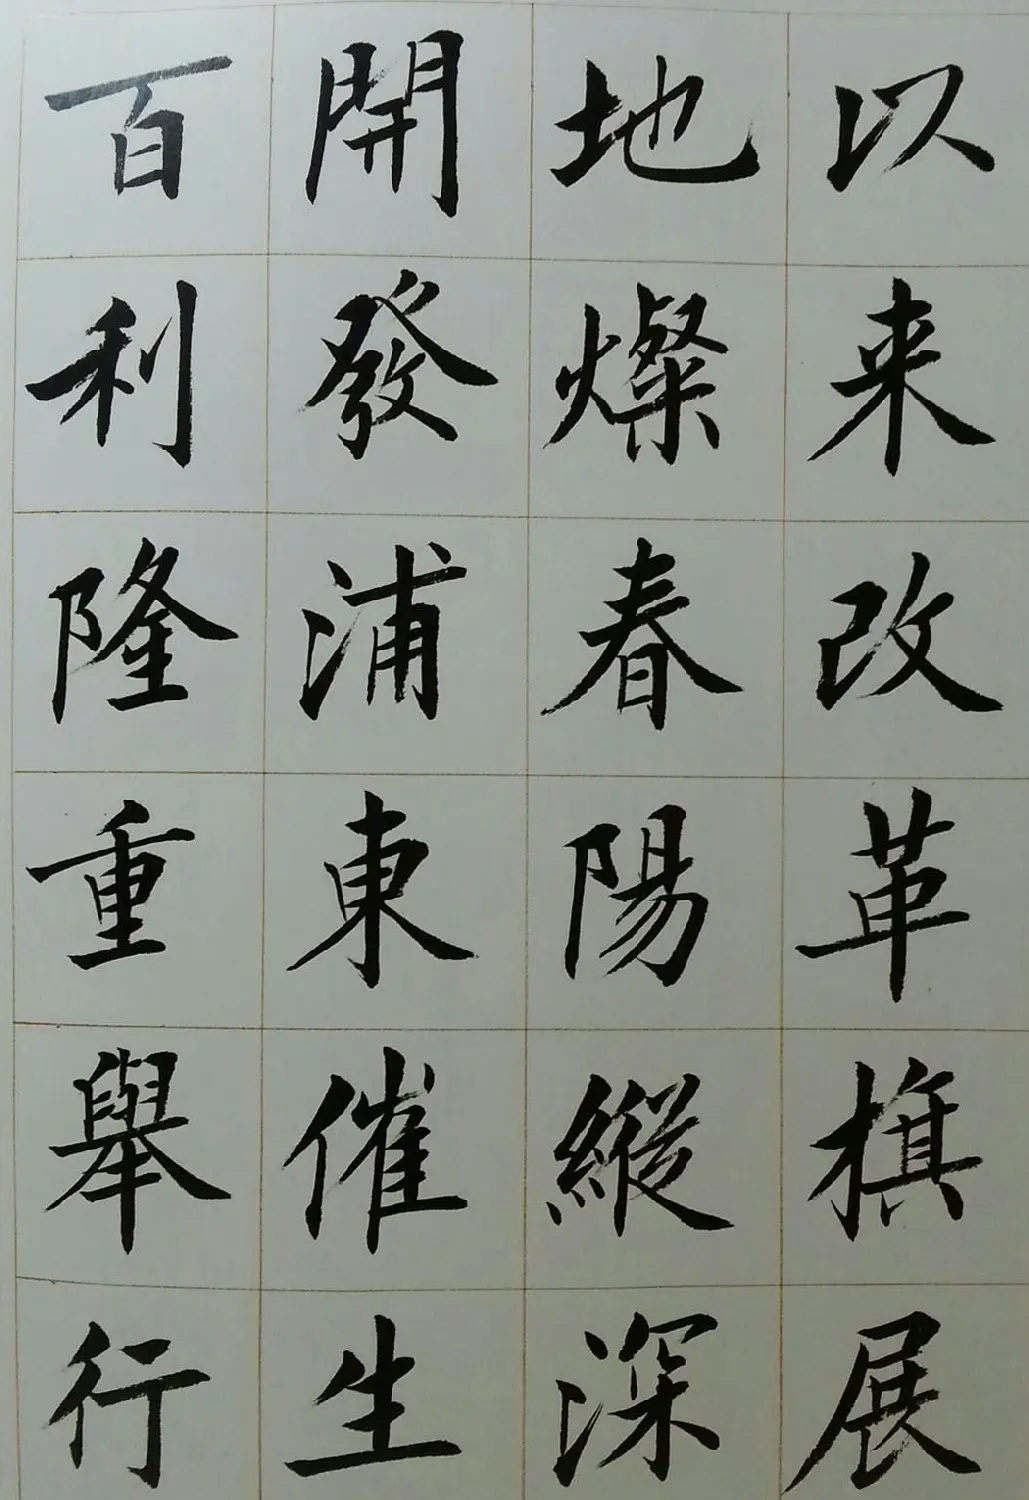 以来改革旗展
地燦春陽縱深
開發浦東催生
百利隆重舉行